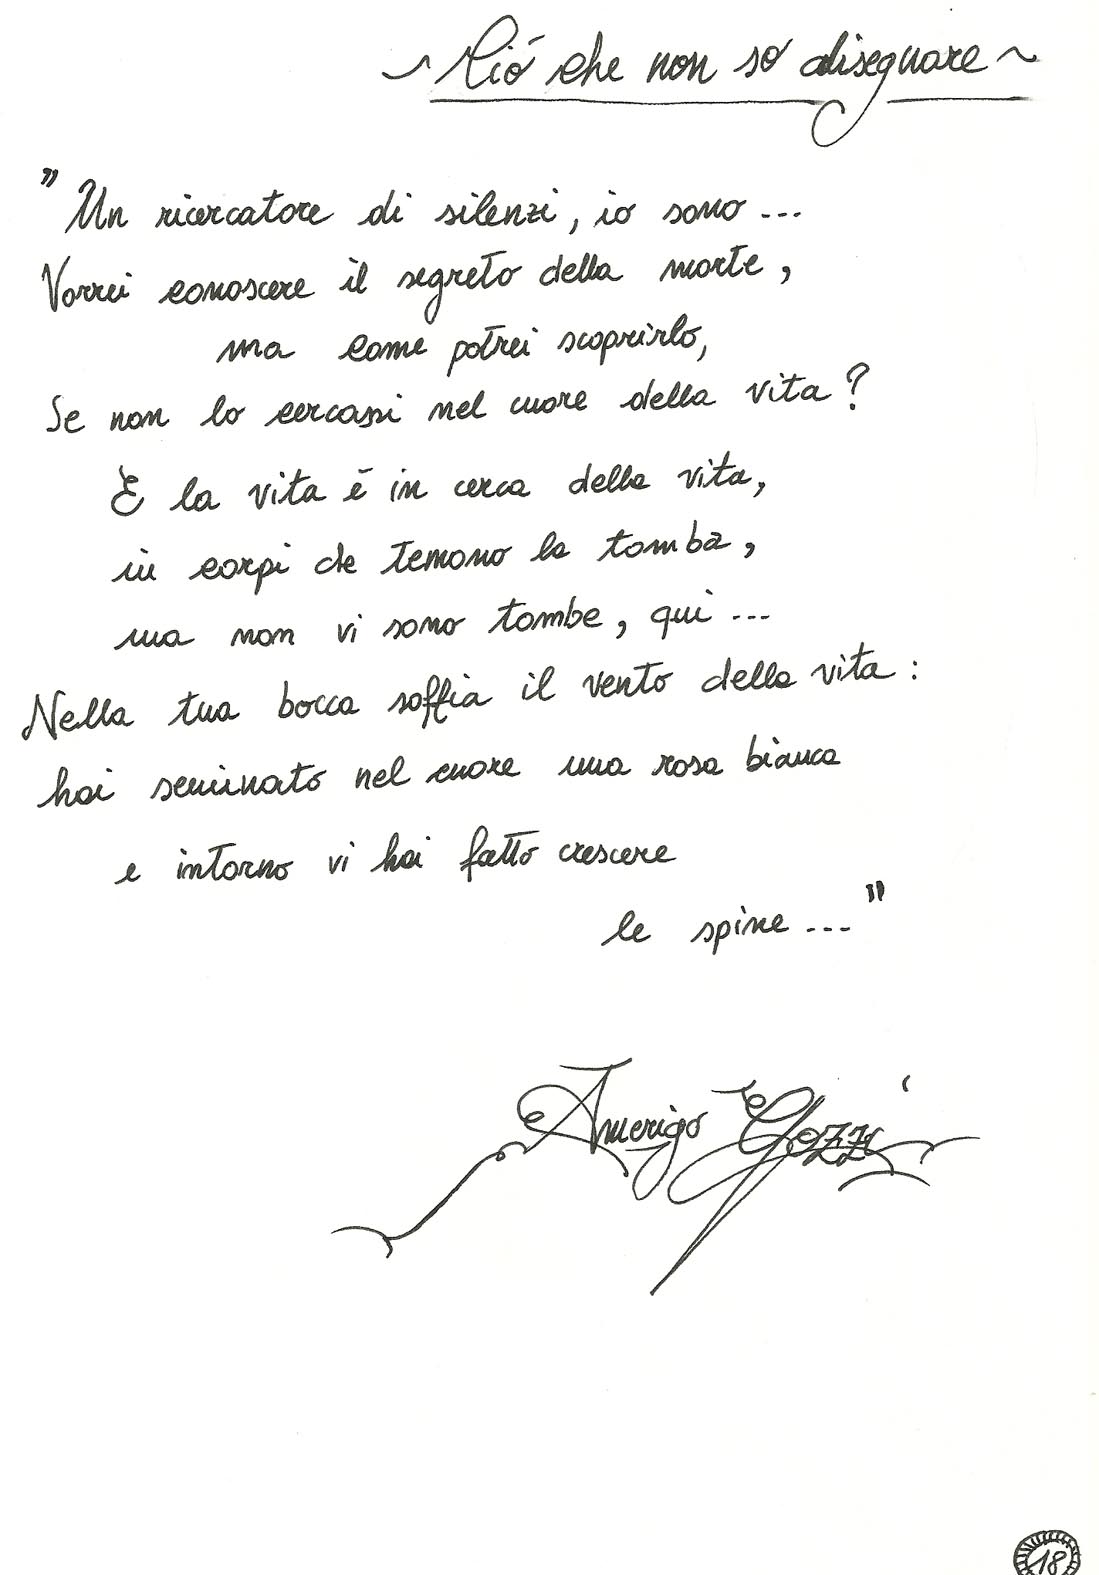 ~ Ció che non so disegnare ~
"Un ricercatore di silenzi, io sono...
Vorrei conoscere il segreto della morte,
ma come potrei scoprirlo,
Se non lo cercassi nel cuore della vita?
E la vita è in cerca della vita,
in corpi che temono la tomba,
ma non vi sono tombe, qui...
Nella tua bocca soffia il vento della vita:
hai seminato nel cuore una rosa bianca
e intorno vi hai fatto crescere
le spine..."
Amerigo Gozzi
18